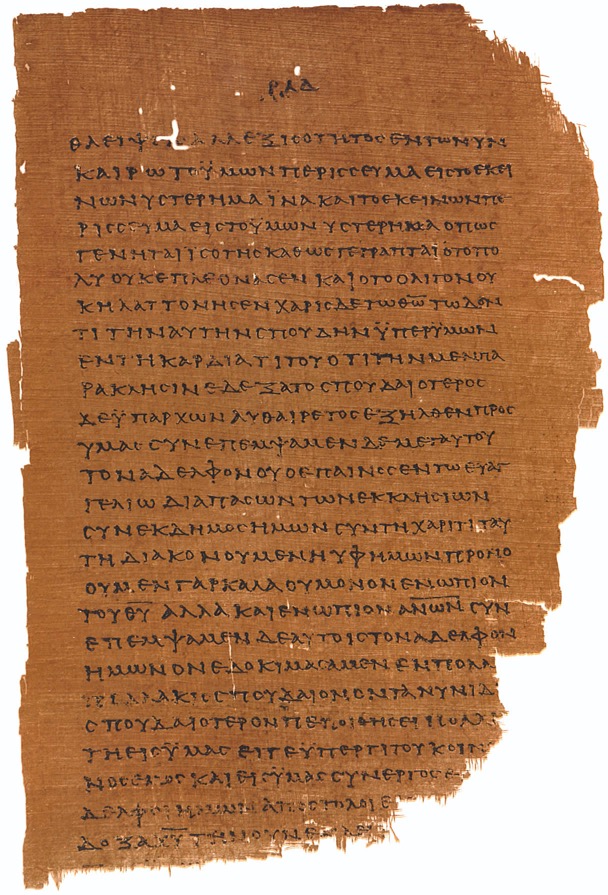 ΡΛΔ
ΘΛΕΙΨ ΑΛΛΕΞΙϹΟΤΗΤΟϹΕΝΤΩΝΥΝ
ΚΑΙΡΩΤΟΫΜΩΝΠΕΡΙϹϹΕΥΜΑΕΙϹΤΟΕΚΕΙ
ΝΩΝΥϹΤΕΡΗΜΑΪΝΑΚΑΙΤΟΕΚΕΙΝΩΝΠΕ
ΡΙϹϹΕΥΜΑΕΙϹΤΟΫΜΩΝΥϹΤΕΡΗΜΑΟΠΩϹ
ΓΕΝΗΤΑΙΪϹΟΤΗϹΚΑΘΩϹΓΕΓΡΑΠΤΑΙΟΤΟΠΟ
ΛΥΟΥΚΕΠΛΕΟΝΑϹΕΝΚΑΙΟΤΟΟΛΙΓΟΝΟΥ
ΚΗΛΑΤΤΟΝΗϹΕΝΧΑΡΙϹΔΕΤΩΘ̅Ω̅ΤΩΔΟΝ
ΤΙΤΗΝΑΥΤΗΝϹΠΟΥΔΗΝΫΠΕΡΫΜΩΝ
ΕΝΤΗΚΑΡΔΙΑΤΙΤΟΥΟΤΙΤΗΝΜΕΝΠΑ
ΡΑΚΛΗϹΙΝΕΔΕΞΑΤΟϹΠΟΥΔΑΙΟΤΕΡΟϹ
ΔΕΫΠΑΡΧΩΝΑΥΘΑΙΡΕΤΟϹΕΞΗΛΘΕΝΠΡΟϹ
ΥΜΑϹϹΥΝΕΠΕΜΨΑΜΕΝΔΕΜΕΤΑΥΤΟΥ
ΤΟΝΑΔΕΛΦΟΝΟΥΟΕΠΑΙΝΟϹΕΝΤΩΕΥΑΓ
ΓΕΛΙΩΔΙΑΠΑϹΩΝΤΩΝΕΚΚΛΗϹΙΩΝ
ϹΥΝΕΚΔΗΜΟϹΗΜΩΝϹΥΝΤΗΧΑΡΙΤΙΤΑΥ
ΤΗΔΙΑΚΟΝΟΥΜΕΝΗΥΦΗΜΩΝΠΡΟΝΟ
ΟΥΜΕΝΓΑΡΚΑΛΑΟΥΜΟΝΟΝΕΝΩΠΙΟΝ
ΤΟΥΘΥΑΛΛΑΚΑΙΕΝΩΠΙΟΝΑ̅Ν̅Ω̅Ν̅ϹΥΝ
ΕΠΕΜΨΑΜΕΝΔΕΑΥΤΟΙϹΤΟΝΑΔΕΛΦΟΝ
ΗΜΩΝΟΝΕΔΟΚΙΜΑϹΑΜΕΝΕΝΠΟΛΛ
ΠΟΛΛΑΚΙϹϹΠΟΥΔΑΙΟΝΟΝΤΑΝΥΝΙΔ
ϹΠΟΥΔΑΙΟΤΕΡΟΝΠΕΠΟΙΘΗϹΕΙΠΟΛΛ
ΤΗΕΙϹΫΜΑϹΕΙΤΕΫΠΕΡΤΙΤΟΥΚΟΙΝ
ΝΟϹΕΜΟϹΚΑΙΕΙϹΫΜΑϹϹΥΝΕΡΓΟϹΕ
ΔΕΛΦΟΙΗΜΩΝΑΠΟϹΤΟΛΟΙΕ
ΔΟΞΑΧ̅Υ̅ΤΗΝΟΥΝΕΝΔΕΙ